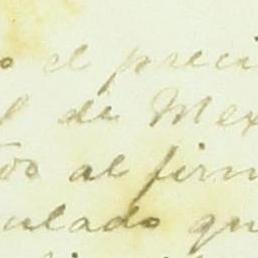 o el preci
l de Mex
tos al firm
culado qu